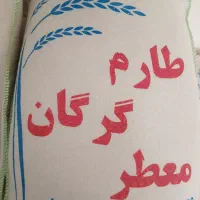 طارم
گرگان
معطر